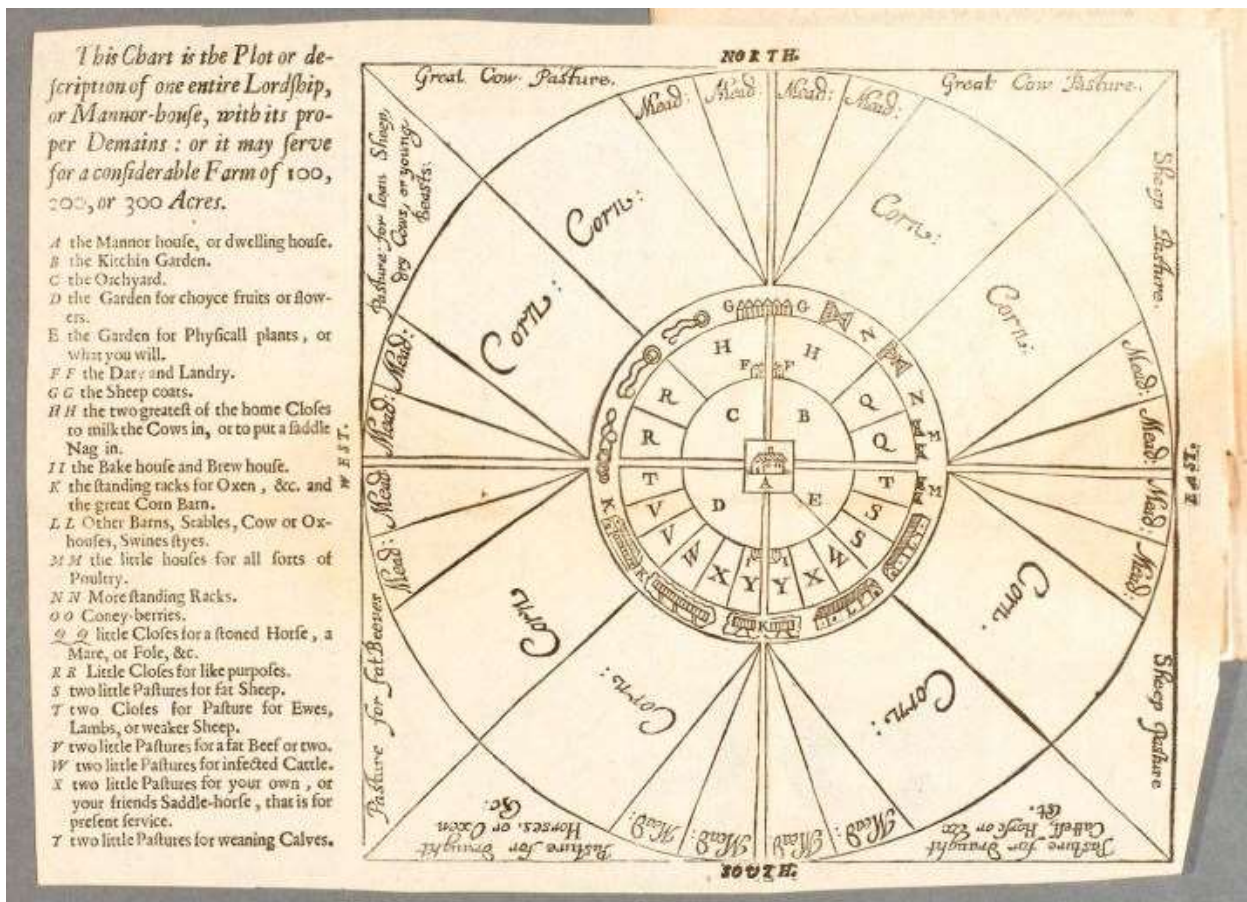 This Chart is the Plot or de-
ſcription of one entire Lordſhip,
or Mannor-houſe, with its pro-
per Demains : or it may ſerve
for a conſiderable Farm of 100,
200, or 300 Acres.
A the Mannor houſe, or dwelling houſe.
B the Kitchin Garden.
C the Orchyard.
D the Garden for choyce fruits or flow-
ers.
E the Garden for Phyſicall plants , or
what you will.
F F the Dary and Landry.
G G the Sheep coats.
H H the two greateſt of the home Cloſes
to milk the Cows in, or to put a ſaddle
Nag in.
I I the Bake houſe and Brew houſe.
K the ſtanding racks for Oxen , &c. and
the great Corn Barn.
L L Other Barns, Stables, Cow or Ox-
houſes, Swines ſtyes.
M M the little houſes for all ſorts of
Poultry.
N N More ſtanding Racks.
O O Coney-berries.
Q Q little Cloſes for a ſtoned Horſe , a
Mare, or Fole, &c.
R R Little Cloſes for like purpoſes.
S two little Paſtures for fat Sheep.
T two Cloſes for Paſture for Ewes,
Lambs, or weaker Sheep.
V two little Paſtures for a fat Beef or two.
W two little Paſtures for infected Cattle.
X two little Paſtures for your own , or
your friends Saddle-horſe , that is for
preſent ſervice.
T two little Paſtures for weaning Calves.
NORTH.
Great Cow Paſture.
Mead:
Mead:
Mead:
Mead:
Great Cow Paſture.
Paſture for lean Sheep,
dry Cows, or young
Beasts:
Corn:
Corn:
Corn:
Corn:
Sheep Paſture.
Mead:
Mead:
Mead:
Mead:
WEST.
EAST.
G G
N
H H
F F
N
R C B Q
R Q M
A
T T M
K V D E S
V S
K W W
X Y I I Y X
K
Mead:
Mead:
Mead:
Mead:
Corn
Corn:
Corn:
Corn.
Paſture for fat Beeves
Sheep Paſture
Mead:
Mead:
Mead
Mead:
Paſture for Draught
Horſes, or Oxen
&c:
Paſture for Draught
Cattell, Horſe or Ox
&c.
SOUTH.